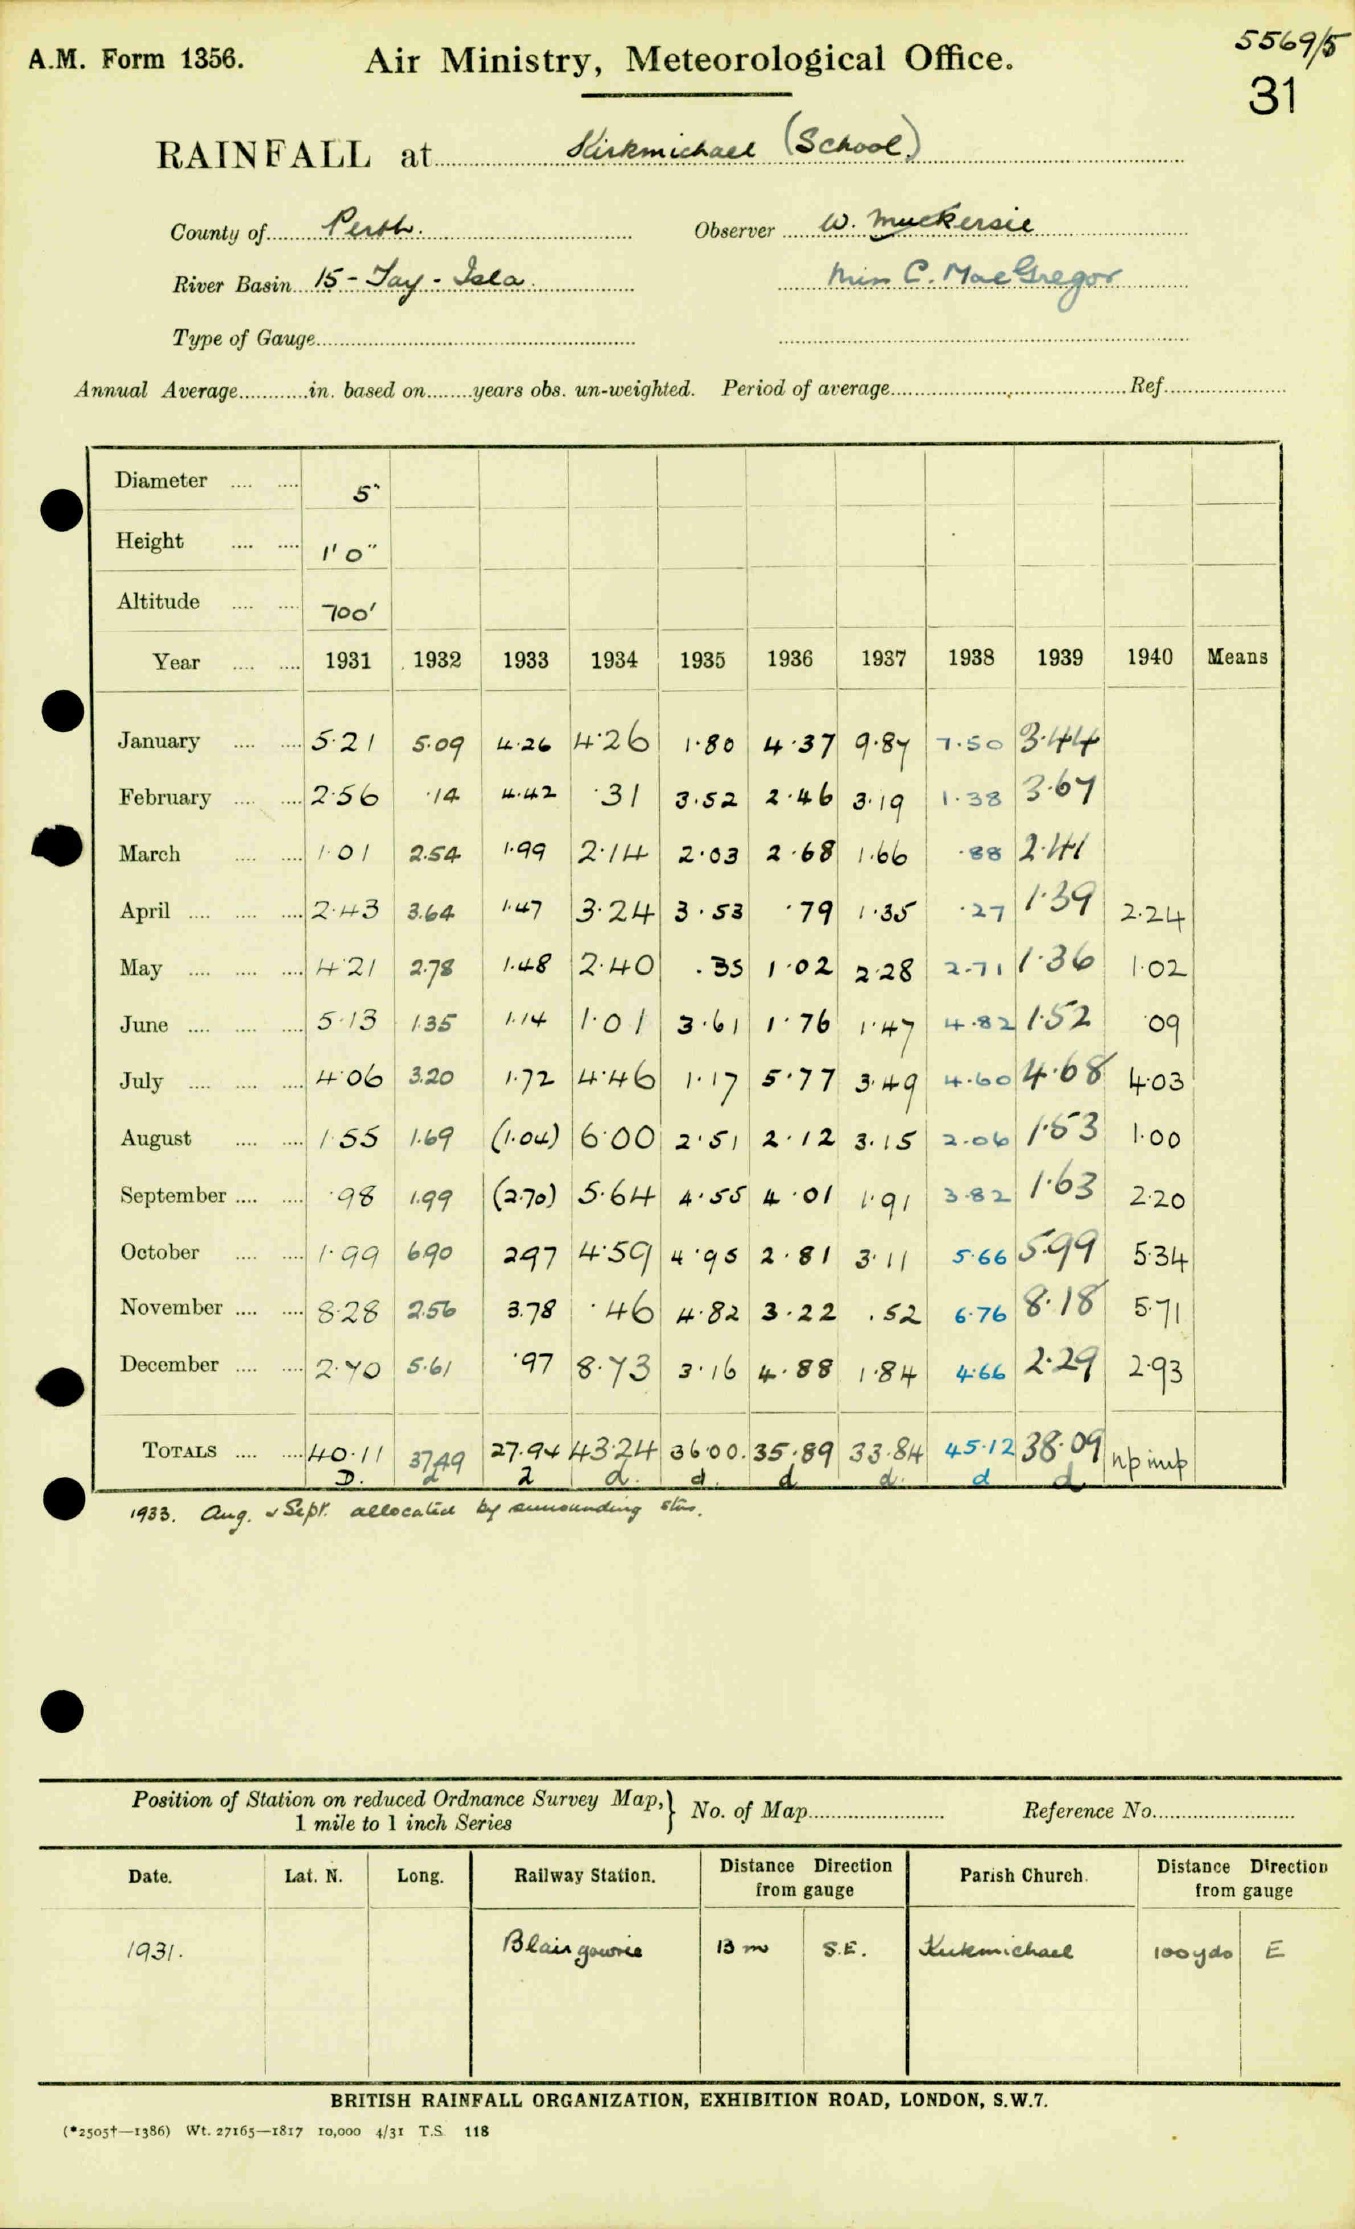 5569/5
A.M. Form 1356. Air Ministry, Meteorological Office.
31
RAINFALL at Kirkmichael (School)
County of Perth. Observer W. Muckersie
River Basin 15 - Tay - Isla. Miss C. MacGregor
Type of Gauge
Annual Average in. based on years obs. un-weighted. Period of average Ref.
Diameter 5"
Height 1'0"
Altitude 700'
Year 1931 1932 1933 1934 1935 1936 1937 1938 1939 1940 Means
January 5·21 5·09 4·26 4·26 1·80 4·37 9·87 7·50 3·44
February 2·56 ·14 4·42 ·31 3·52 2·46 3·19 1·38 3·67
March 1·01 2·54 1·99 2·14 2·03 2·68 1·66 ·88 2·41
April 2·43 3·64 1·47 3·24 3·53 ·79 1·35 ·27 1·39 2·24
May 4·21 2·78 1·48 2·40 ·35 1·02 2·28 2·71 1·36 1·02
June 5·13 1·35 1·14 1·01 3·61 1·76 1·47 4·82 1·52 ·09
July 4·06 3·20 1·72 4·46 1·17 5·77 3·49 4·60 4·68 4·03
August 1·55 1·69 (1·04) 6·00 2·51 2·12 3·15 2·06 1·53 1·00
September ·98 1·99 (2·70) 5·64 4·55 4·01 1·91 3·82 1·63 2·20
October 1·99 6·90 2·97 4·59 4·95 2·81 3·11 5·66 5·99 5·34
November 8·28 2·56 3·78 ·46 4·82 3·22 ·52 6·76 8·18 5·71
December 2·70 5·61 ·97 8·73 3·16 4·88 1·84 4·66 2·29 2·93
TOTALS 40·11 37·49 27·94 43·24 36·00 35·89 33·84 45·12 38·09 np imp
D. d 2 d. d. d d. d d
1933. Aug. & Sept. allocated by surrounding stns.
Position of Station on reduced Ordnance Survey Map, } No. of Map Reference No.
1 mile to 1 inch Series
Date. Lat. N. Long. Railway Station. Distance Direction from gauge Parish Church. Distance Direction from gauge
1931. Blairgowrie 13 m S.E. Kirkmichael 100 yds E
BRITISH RAINFALL ORGANIZATION, EXHIBITION ROAD, LONDON, S.W.7.
(*2505†—1386) Wt. 27165—1817 10,000 4/31 T.S. 118